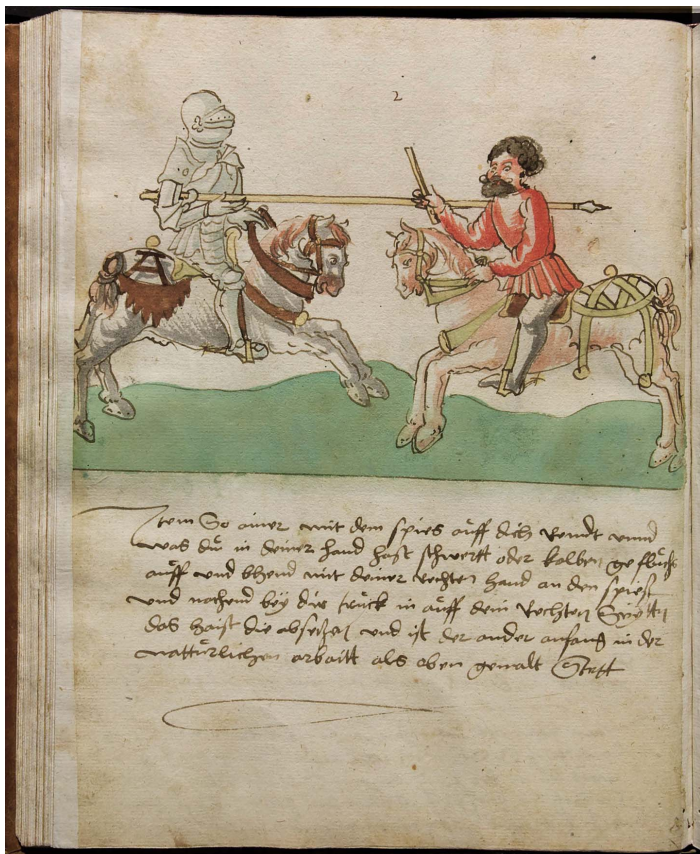 2
Item So ainer mit dem spies auff dich Rendt unnd
was du in deiner hand hast schwertt oder kolben
auff und bhend mit deiner rechten hand an den spiess
und nahend bey dir truck in auff dein Rechten Seytten
das haist die absetzen und ist der ander anfang in der
nattürlichen arbaitt als oben gemalt Stett